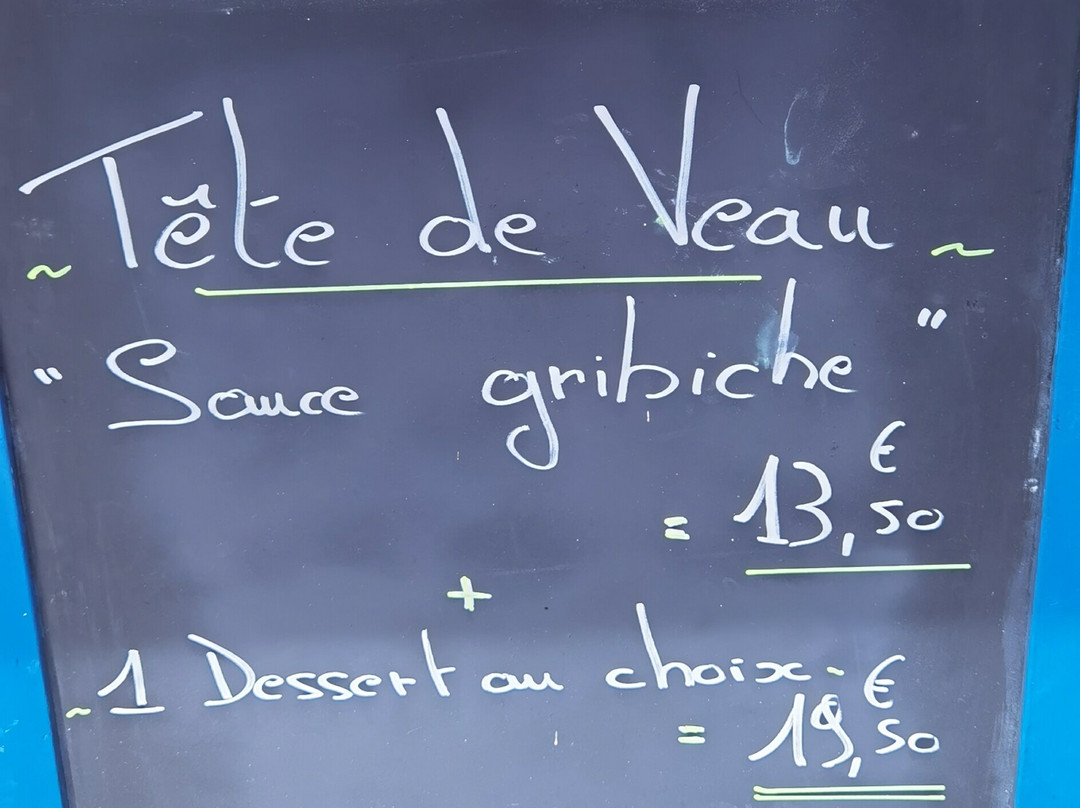 ~ Tête de Veau ~
" Sauce gribiche "
= 13,50 €
+
~ 1 Dessert au choix -
= 19,50 €